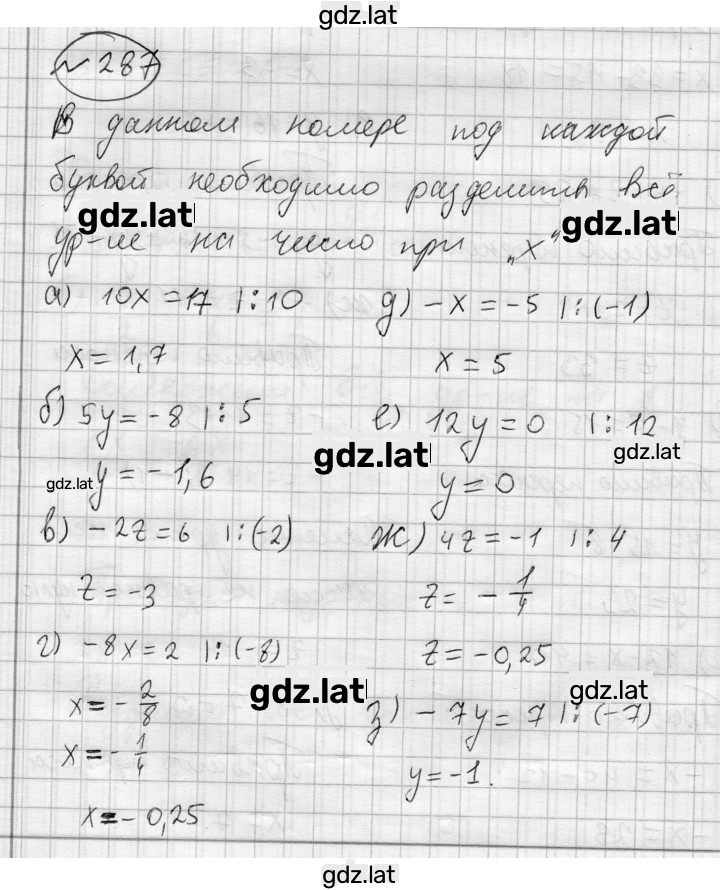 gdz.lat
№ 287
В данном номере под каждой
буквой необходимо разделить всё
gdz.lat
gdz.lat
ур-ие на число при „x“
а) 10x = 17 |: 10
x = 1,7
б) 5y = -8 |: 5
gdz.lat y = -1,6
в) -2z = 6 |: (-2)
z = -3
г) -8x = 2 |: (-8)
x = - 2/8
x = - 1/4
x = - 0,25
д) -x = -5 |: (-1)
x = 5
е) 12y = 0 |: 12
gdz.lat
gdz.lat
y = 0
ж) 4z = -1 |: 4
z = - 1/4
z = -0,25
gdz.lat
gdz.lat
з) -7y = 7 |: (-7)
y = -1.
gdz.lat